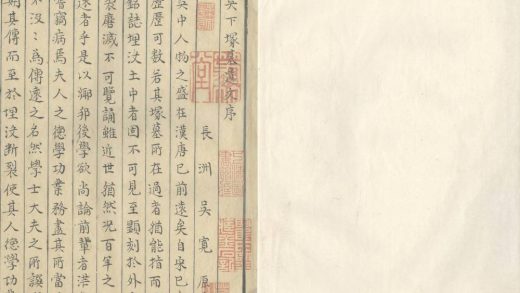 吳下塚墓遺文序
長洲吳寬原
吳中人物之盛在漢唐已前遠矣自宋已
歷歷可數若其塚墓所在過者猶能指而
銘誌埋沒土中者固不可見至顯刻於外
裂磨滅不可覽誦雖近世猶然況百年之
遂者乎是以鄉邦後學欲尚論前輩者
竊病焉夫人之德學功業務盡其所當
不沒沒焉傳遠之名然學士大夫之所譔
期其傳而至於埋沒斷裂使其人德學功